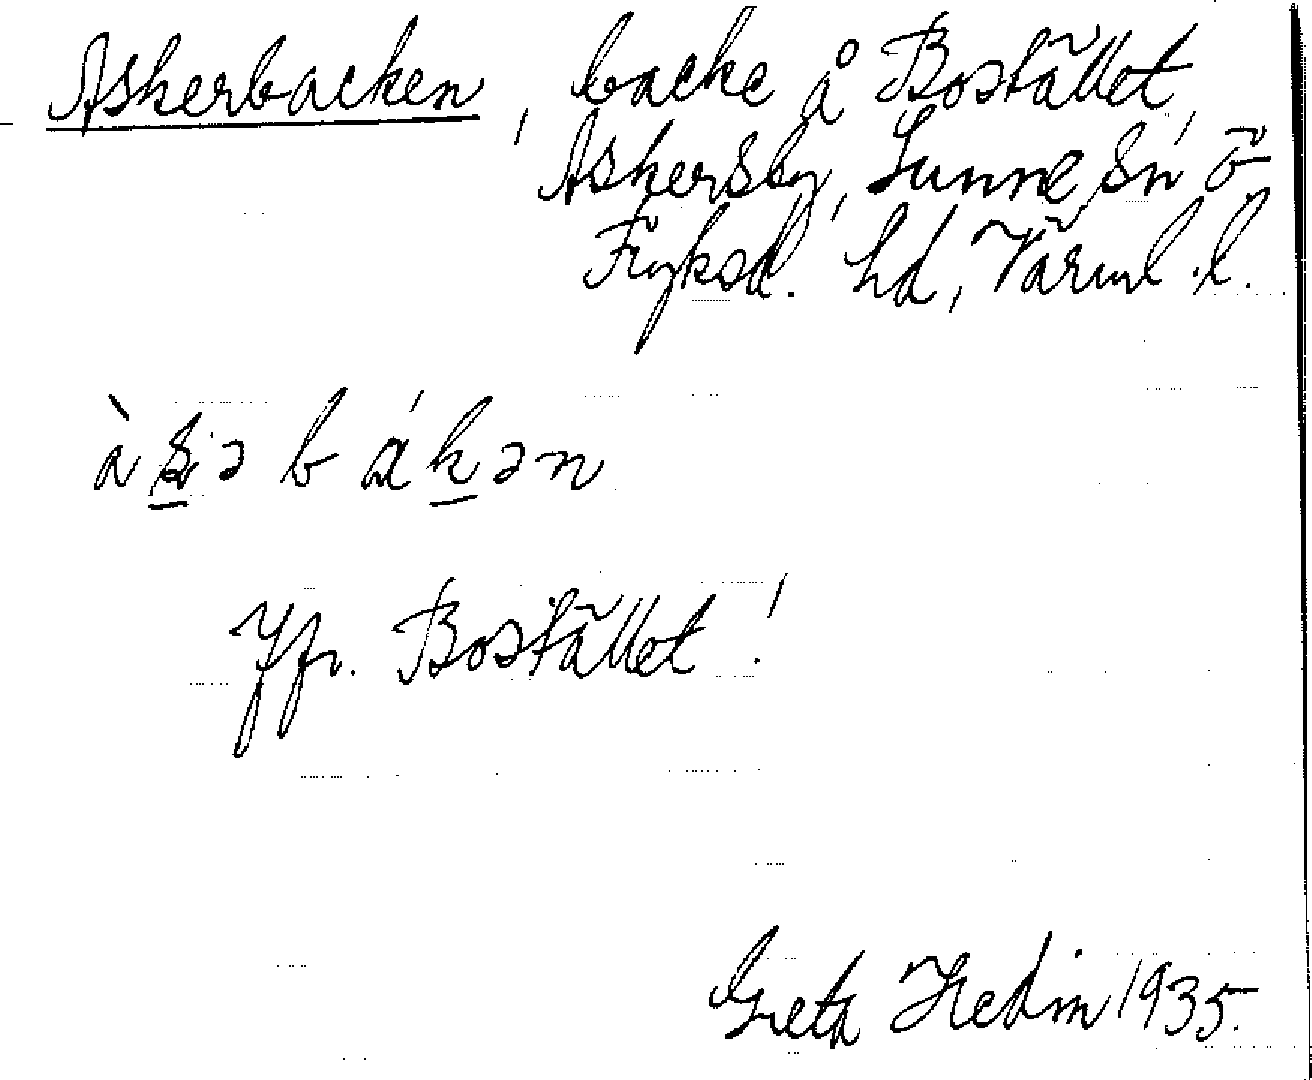 Askerbacken, backe å Bostället,
Askersby, Sunne sn ö
Fryksd. hd, Värml. l.
bákən
Jfr. Bostället!
Greta Hedin 1935.